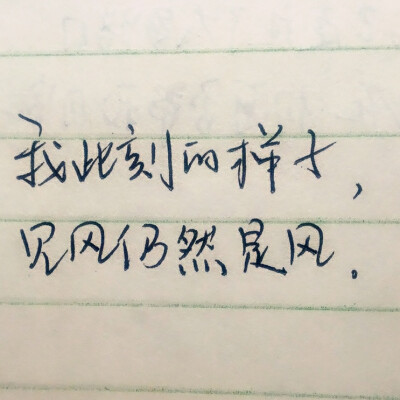 我此刻的样子，
见风仍然是风。